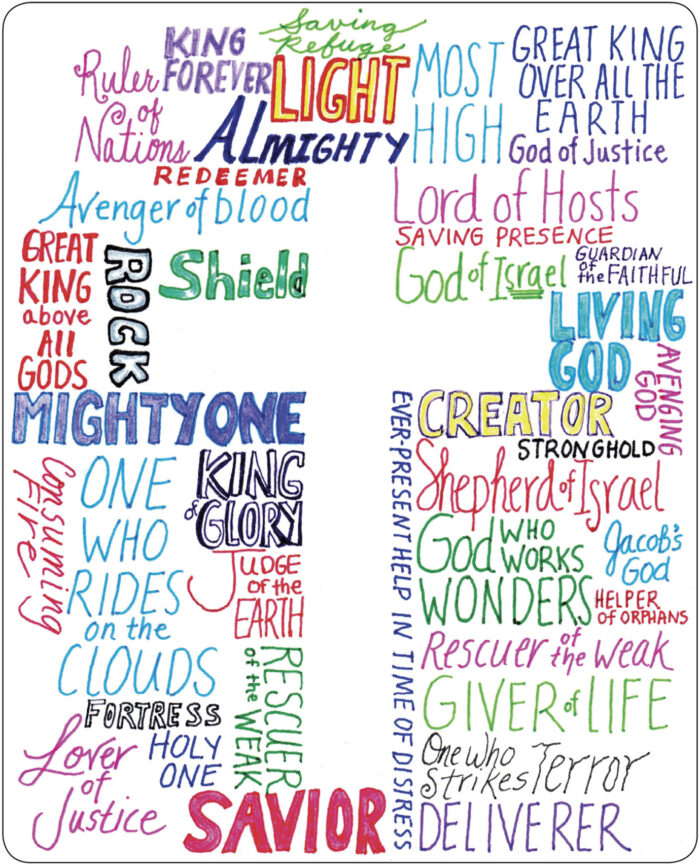 Saving
Refuge
KING
FOREVER
LIGHT
MOST
HIGH
GREAT KING
OVER ALL THE
EARTH
Ruler
of
Nations
ALMIGHTY
God of Justice
REDEEMER
Avenger of blood
Lord of Hosts
SAVING PRESENCE
GREAT
KING
above
All
GODS
ROCK
Shield
God of Israel
GUARDIAN
of
the FAITHFUL
LIVING
GOD
AVENGING
GOD
MIGHTY ONE
EVER-PRESENT HELP IN TIME OF DISTRESS
CREATOR
STRONGHOLD
Consuming
Fire
ONE
WHO
RIDES
on the
CLOUDS
KING
of GLORY
Shepherd of Israel
JUDGE
of the
EARTH
God WHO
WORKS
WONDERS
Jacob's
God
HELPER
of ORPHANS
RESCUER
of the WEAK
Rescuer of the weak
FORTRESS
GIVER of LIFE
Lover
of
Justice
HOLY
ONE
One who
Strikes Terror
SAVIOR
DELIVERER